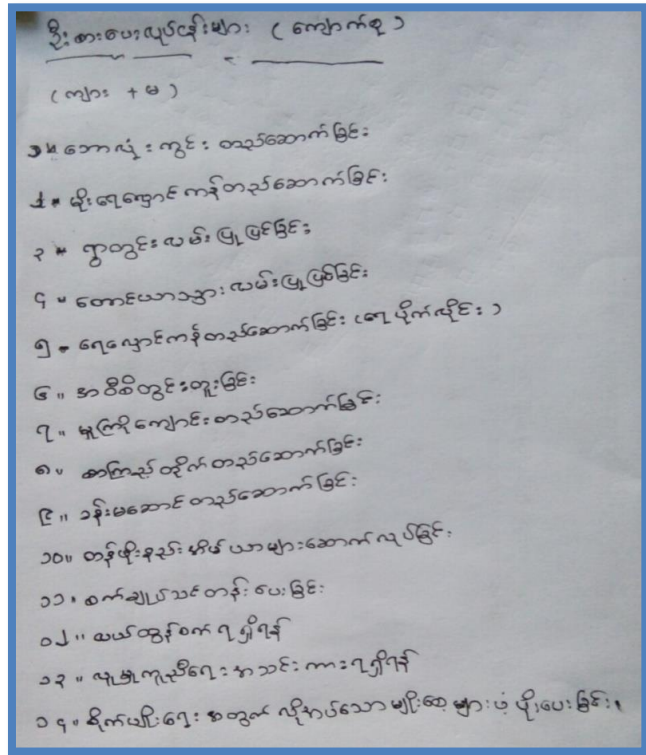 ဦးစားပေးလုပ်ငန်းများ (ကျောက်စု)
(ကျား + မ)
၁။ ဘောလုံးကွင်း တည်ဆောက်ခြင်း
၂။ မိုးရေလှောင်ကန်တည်ဆောက်ခြင်း
၃။ ရွာတွင်းလမ်းပြုပြင်ခြင်း
၄။ တောင်ယာသွားလမ်းပြုပြင်ခြင်း
၅။ ရေလှောင်ကန်တည်ဆောက်ခြင်း (ရေပိုက်လိုင်း)
၆။ အဝီစိတွင်းတူးခြင်း
၇။ မူကြိုကျောင်းတည်ဆောက်ခြင်း
၈။ စာကြည့်တိုက်တည်ဆောက်ခြင်း
၉။ ခန်းမဆောင်တည်ဆောက်ခြင်း
၁၀။ တန်ဖိုးနည်းအိမ်ယာများဆောက်လုပ်ခြင်း
၁၁။ စက်ချုပ်သင်တန်းပေးခြင်း
၁၂။ ထယ်ထွန်စက်ရရှိရန်
၁၃။ လူမှုကူညီရေးအသင်းကားရရှိရန်
၁၄။ စိုက်ပျိုးရေးအတွက် လိုအပ်သောမျိုးစေ့များပံ့ပိုးပေးခြင်း။